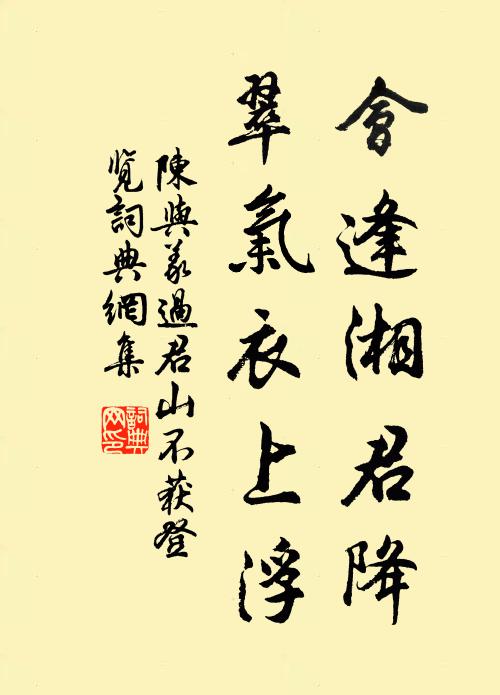 會逢湘君降
翠氣衣上浮
陳與義過君山不获登
览詞典網集
詞典
网印